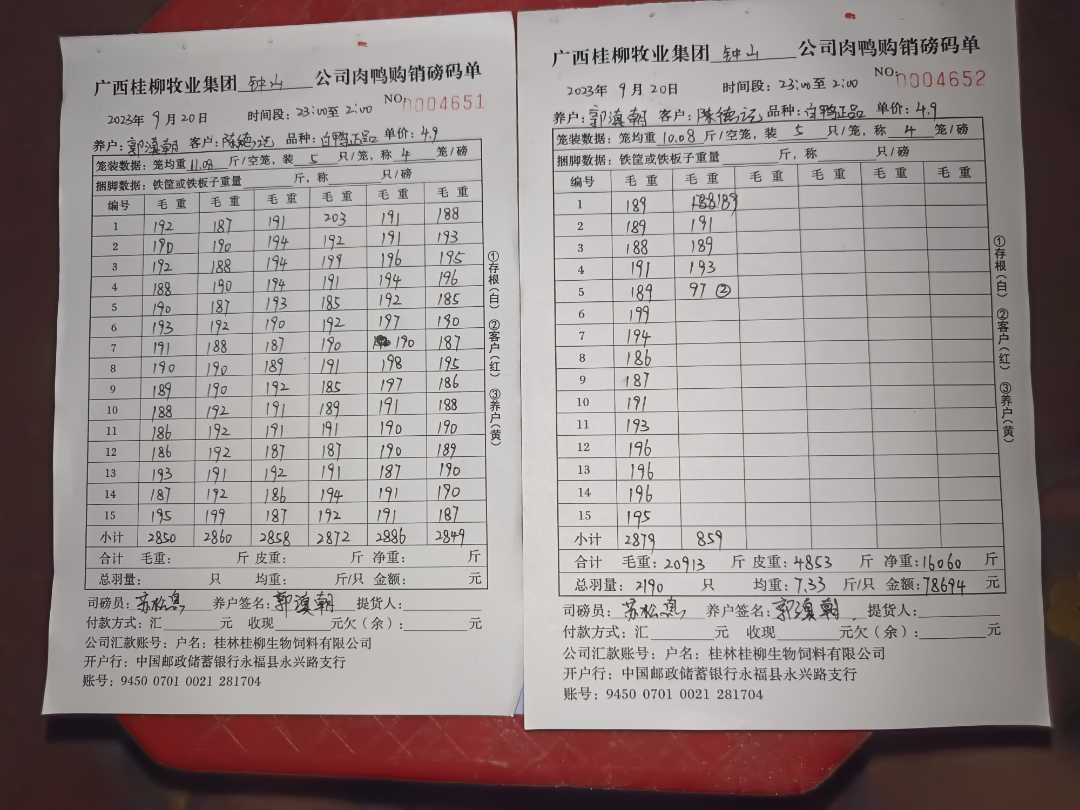 广西桂柳牧业集团 钟山 公司肉鸭购销磅码单
2023年 9月20日 时间段：23:00至 2:00 NO: 0004651
养户：郭滇朝 客户：陈德记 品种：白鸭正品 单价：4.9
笼装数据：笼均重 11.08 斤/空笼，装 5 只/笼，称 4 笼/磅
捆脚数据：铁筐或铁板子重量 斤，称 只/磅
编号 毛重 毛重 毛重 毛重 毛重 毛重
1 192 187 191 203 191 188
2 190 190 194 192 191 193
3 192 188 194 199 196 195
4 188 190 194 191 194 196
5 190 187 193 185 192 185
6 193 192 190 192 197 190
7 191 188 187 190 190 187
8 190 190 189 191 198 195
9 189 190 192 185 197 186
10 188 192 191 189 191 188
11 186 192 191 191 190 190
12 186 192 187 187 190 189
13 193 191 192 191 187 190
14 187 192 186 194 191 190
15 195 199 187 192 191 187
小计 2850 2860 2858 2872 2886 2849
合计 毛重： 斤 皮重： 斤 净重： 斤
总羽量： 只 均重： 斤/只 金额： 元
司磅员：苏松 养户签名：郭滇朝 提货人：
付款方式：汇 元 收现 元欠（余）： 元
公司汇款账号：户名：桂林桂柳生物饲料有限公司
开户行：中国邮政储蓄银行永福县永兴路支行
账号：9450 0701 0021 281704
①存根（白） ②客户（红） ③养户（黄）
广西桂柳牧业集团 钟山 公司肉鸭购销磅码单
2023年 9月20日 时间段：23:00至 2:00 NO: 0004652
养户：郭滇朝 客户：陈德记 品种：白鸭正品 单价：4.9
笼装数据：笼均重 10.08 斤/空笼，装 5 只/笼，称 4 笼/磅
捆脚数据：铁筐或铁板子重量 斤，称 只/磅
编号 毛重 毛重 毛重 毛重 毛重 毛重
1 189 188 189
2 189 191
3 188 189
4 191 193
5 189 97 ②
6 199
7 194
8 186
9 187
10 191
11 193
12 196
13 196
14 196
15 195
小计 2879 859
合计 毛重：20913 斤 皮重：4853 斤 净重：16060 斤
总羽量：2190 只 均重：7.33 斤/只 金额：78694 元
司磅员：苏松 养户签名：郭滇朝 提货人：
付款方式：汇 元 收现 元欠（余）： 元
公司汇款账号：户名：桂林桂柳生物饲料有限公司
开户行：中国邮政储蓄银行永福县永兴路支行
账号：9450 0701 0021 281704
①存根（白） ②客户（红） ③养户（黄）